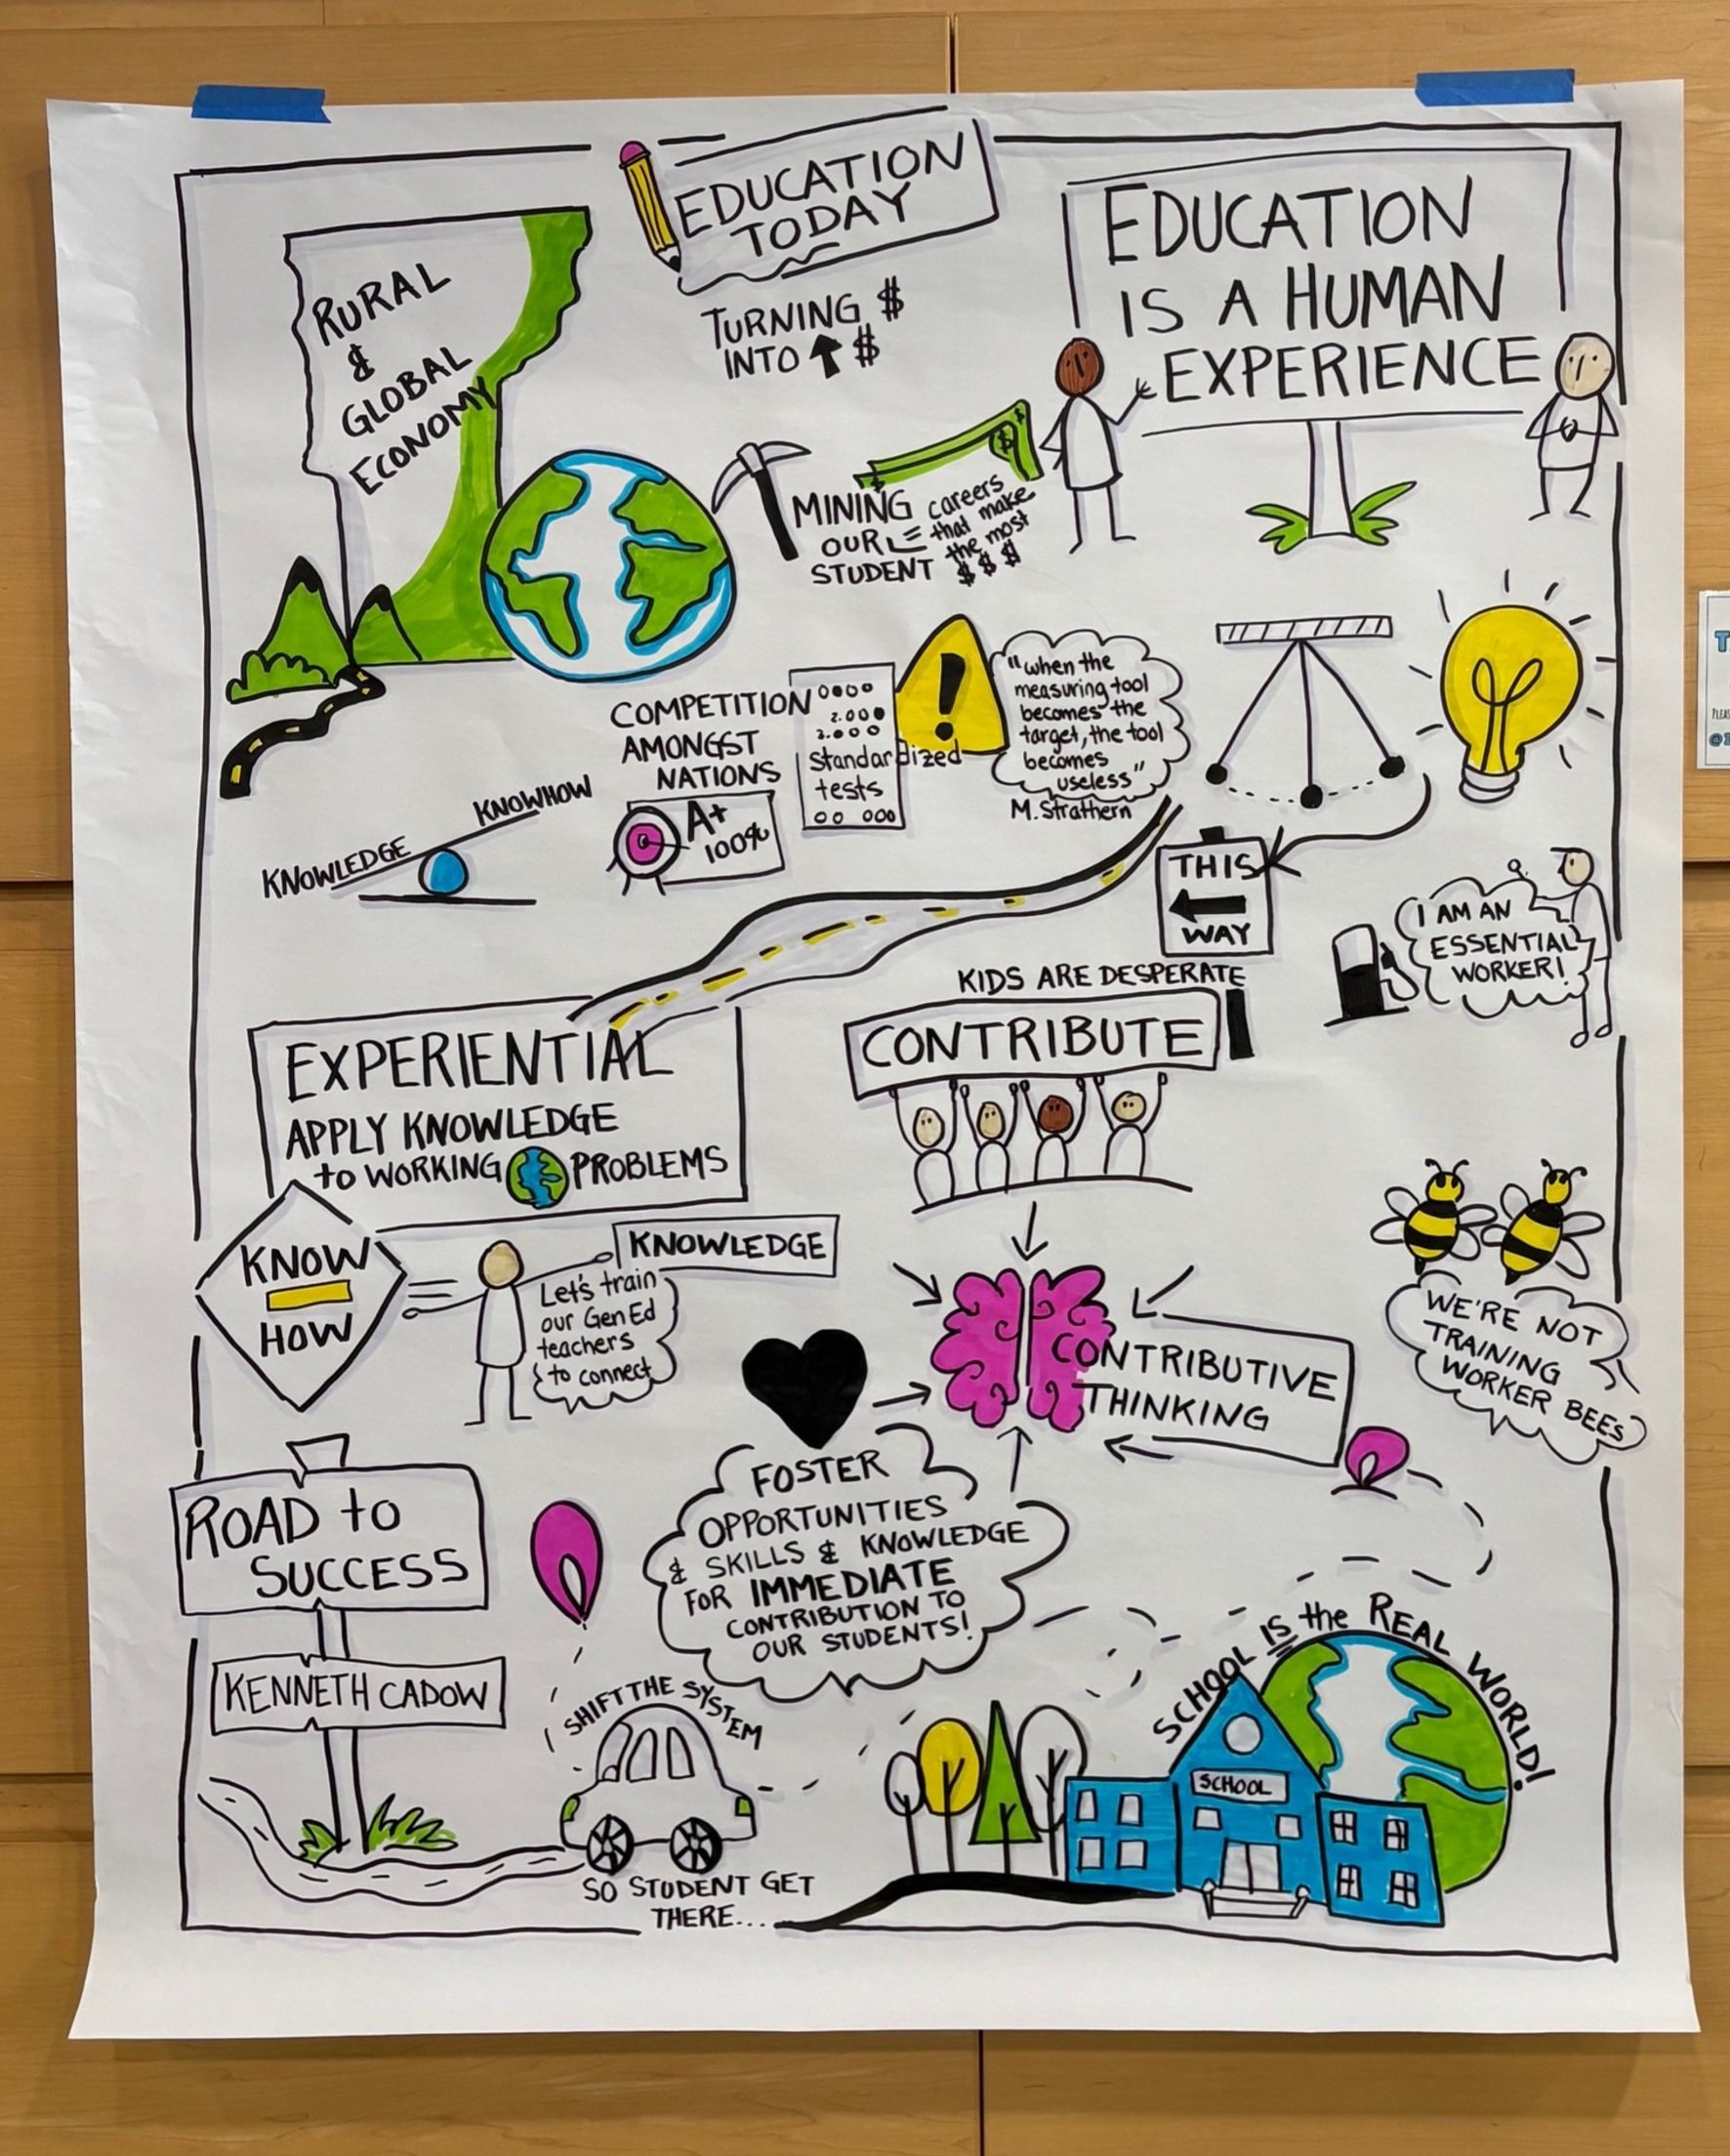 EDUCATION
TODAY
TURNING $
INTO $
RURAL
&
GLOBAL
ECONOMY
EDUCATION
IS A HUMAN
EXPERIENCE
MINING
OUR
STUDENT
careers
that make
the most
$ $ $
COMPETITION
AMONGST
NATIONS
A+
100%
2.
3.
Standardized
tests
!
"when the
measuring tool
becomes the
target, the tool
becomes
useless"
M. Strathern
KNOWHOW
KNOWLEDGE
THIS
WAY
I AM AN
ESSENTIAL
WORKER!
EXPERIENTIAL
APPLY KNOWLEDGE
to WORKING PROBLEMS
KIDS ARE DESPERATE
CONTRIBUTE
KNOW
HOW
KNOWLEDGE
Let's train
our Gen Ed
teachers
to connect
CONTRIBUTIVE
THINKING
WE'RE NOT
TRAINING
WORKER BEES
FOSTER
OPPORTUNITIES
& SKILLS & KNOWLEDGE
FOR IMMEDIATE
CONTRIBUTION TO
OUR STUDENTS!
ROAD to
SUCCESS
KENNETH CADOW
SHIFT THE SYSTEM
SO STUDENT GET
THERE...
SCHOOL IS the REAL WORLD!
SCHOOL